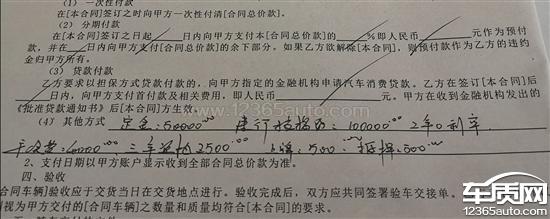 (1) 一次性付款
在[本合同]签订之时向甲方一次性付清[合同总价款]。
(2) 分期付款
在[本合同]签订之日起 日内向甲方支付本[合同总价款]的 %即人民币 元作为预付
款，并在 日内向甲方支付[合同总价款]的余下部分。如果乙方欲解除[本合同]，则预付款作为乙方的违约
金归甲方所有。
(3) 贷款付款
乙方要求以担保方式贷款付款，向甲方指定的金融机构申请汽车消费贷款。乙方在签订[本合同]后
日内，向甲方支付首付款及相关费用，即人民币 元。甲方在收到金融机构发出的
《批准贷款通知书》后[本合同]方生效。
(4) 其他方式 定金:50000.00 建行 100000.00 2年0利率
三年 2500.00 上牌:500.00 抵押:500.00
2、支付日期以甲方账户显示收到全部合同总价款为准。
四、验收
[合同车辆]验收应于交货当日在交货地点进行。验收完成后，双方应共同签署验车交接单。
视为甲方交付的[合同车辆]之数量和质量均符合[本合同]的要求。
www.12365auto.com
车质网
12365auto.com